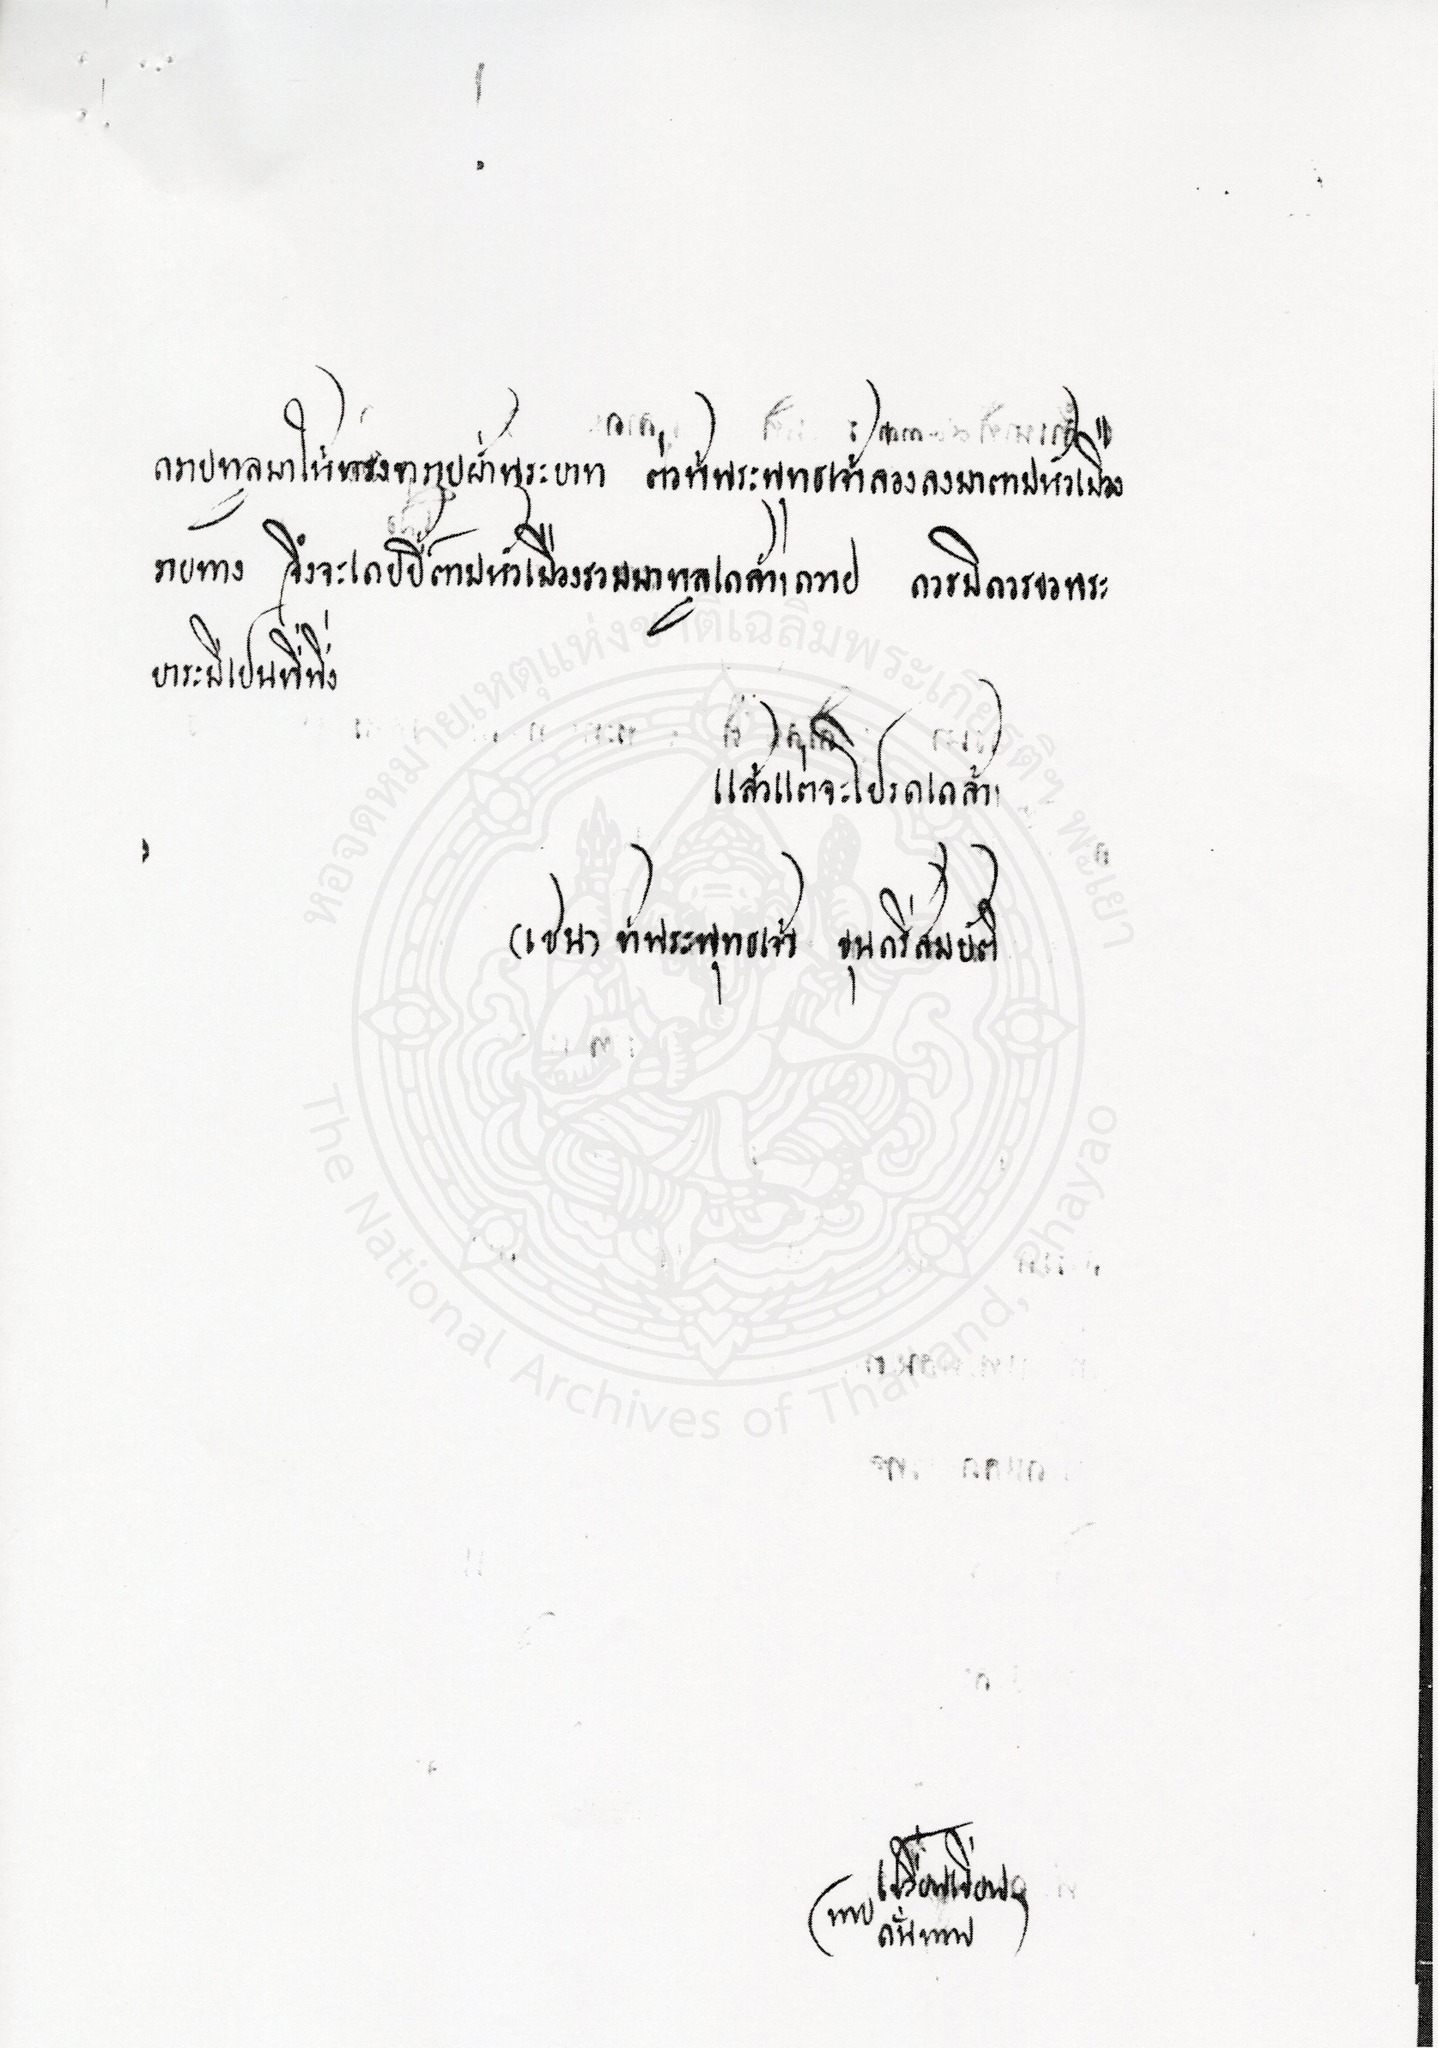 กราบทูลมาให้ทรงทราบฝ่าพระบาท ตัวข้าพระพุทธเจ้าลองลงมาตามหัวเมือง
รายทาง จึงจะเกบบี้ตามหัวเมืองรวมมาทูลเกล้าฯถวาย ควรมิควรขอพระ
บาระมีเปนที่พึ่ง
แล้วแต่จะโปรดเกล้าฯ
(เซน) ข้าพระพุทธเจ้า ขุนศรีสมบัติ
หอจดหมายเหตุแห่งชาติเฉลิมพระเกียรติฯ พะเยา
The National Archives of Thailand, Phayao